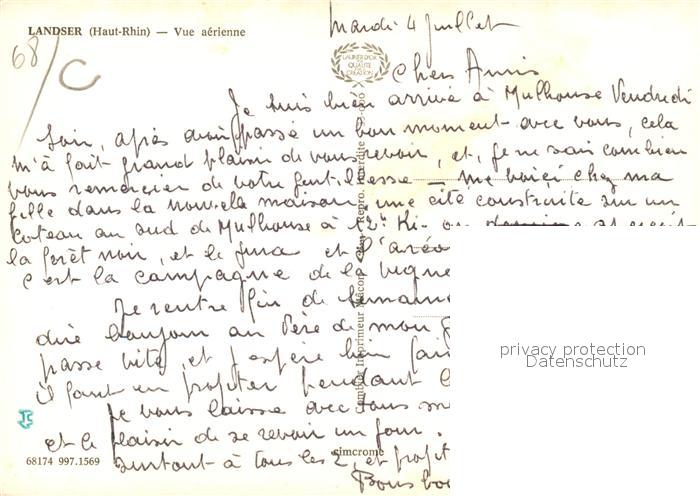 LANDSER (Haut-Rhin) — Vue aérienne
68/C
Mardi 4 Juillet
LAURIER D'OR
DE QUALITÉ
CRÉATION
Chers Amis
Je suis bien arrivée à Mulhouse Vendredi
soir, après avoir passé un bon moment avec vous, cela
m'à fait grand plaisir de vous revoir, et, je ne sais combien
vous remercier de votre gentillesse — me voici chez ma
fille dans la nouvelle maison, une cité construite sur un
coteau au sud de Mulhouse à 12 Ki
la forêt noir, et le Jura et l'aréo
c'est la campagne de la vigne
Je rentre fin de semaine
dire bonjour au Père de mon
passe vite, et j'espère bien
il faut en profiter pendant
Je vous laisse avec tous
et le plaisir de se revoir un jour.
surtout à tous les 2, et profit
Bons
Combier Imprimeur Mâcon
Repro. Interdite
simcrome
68174 997.1569
privacy protection
Datenschutz